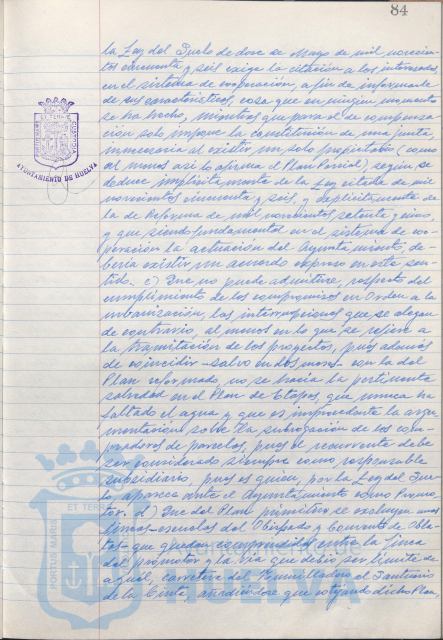 84
la Ley del Suelo de doce de Mayo de mil novecien-
tos cincuenta y seis exige la citación a los interesados,
en el sistema de cooperación, a fin de informarle
de sus características, cosa que en ningún momento
se ha hecho, mientras que para el de compensa-
ción solo impone la constitución de una junta
innecesaria al existir un solo propietario (como
al menos así lo afirma el Plan Parcial) según se
deduce implícitamente de la Ley citada de mil
novecientos cincuenta y seis, y explícitamente de
la de Reforma de mil novecientos setenta y cinco,
y que siendo fundamental en el sistema de coo-
peración la actuación del Ayuntamiento, de-
bería existir un acuerdo expreso en este sen-
tido. c) Que no puede admitirse, respecto del
cumplimiento de los compromisos en Orden a la
urbanización, las interrupciones que se alegan
de contrario, al menos en lo que se refiere a
la tramitación de los proyectos, pues además
de coincidir -salvo en dos meses- con la del
Plan reformado, no se hacía la pertinente
salvedad en el Plan de Etapas, que nunca ha
faltado el agua y que es improcedente la argu-
mentación sobre la subrogación de los com-
pradores de parcelas, pues el recurrente debe
ser considerado siempre como responsable
subsidiario, pues es quien, por la Ley del Sue-
lo, aparece ante el Ayuntamiento como Promo-
tor. d) Que del Plan primitivo se excluyen unos
-escuelas del Obispado y Convento de Obla-
tas- que quedan comprendidas entre la finca
del promotor y la vía que debió ser límite de
aquél, carretera del Humilladero al Santuario
de la Cinta, añadiéndose que cotejando dicho Plan,
AYUNTAMIENTO DE HUELVA
PORTUS MARIS
ET TERRAE
CUSTODIA
Ayuntamiento de
HUELVA